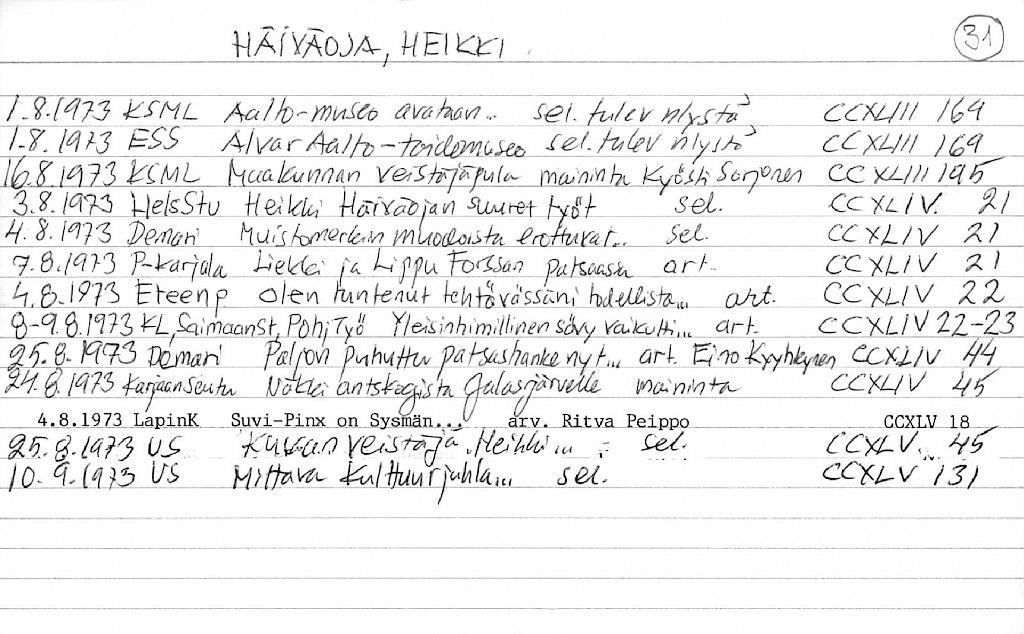 HÄIVÄOJA, HEIKKI 31
1.8.1973 KSML Aalto-museo avataan... sel. tulev nlystä CCXLIII 169
1.8.1973 ESS Alvar Aalto-taidemuseo sel. tulev nlystä CCXLIII 169
16.8.1973 KSML Maakunnan veistäjäpula maininta Kyösti Sorjonen CCXLIII 195
3.8.1973 HelsStu Heikki Häiväojan suuret työt sel. CCXLIV. 21
4.8.1973 Demari Muistomerkin muodoista erottuvat... sel. CCXLIV 21
7.8.1973 P-Karjala Liekki ja Lippu Forssan patsaassa art. CCXLIV 21
4.8.1973 Eteenp olen tuntenut tehtävässäni todellista... art. CCXLIV 22
8-9.8.1973 KL, Saimaanst, PohjTyö Yleisinhimillinen sävy vaikutti... art. CCXLIV 22-23
25.8.1973 Demari Paljon puhuttu patsashanke nyt... art. Eino Kyyhkynen CCXLIV 44
24.8.1973 KarjaanSeutu Nokki antskogista Jalasjärvelle maininta CCXLIV 45
4.8.1973 LapinK Suvi-Pinx on Sysmän... arv. Ritva Peippo CCXLV 18
25.8.1973 US Kuvanveistäjä Heikki... sel. CCXLV 45
10.9.1973 US Mittava kulttuurjuhla... sel. CCXLV 131